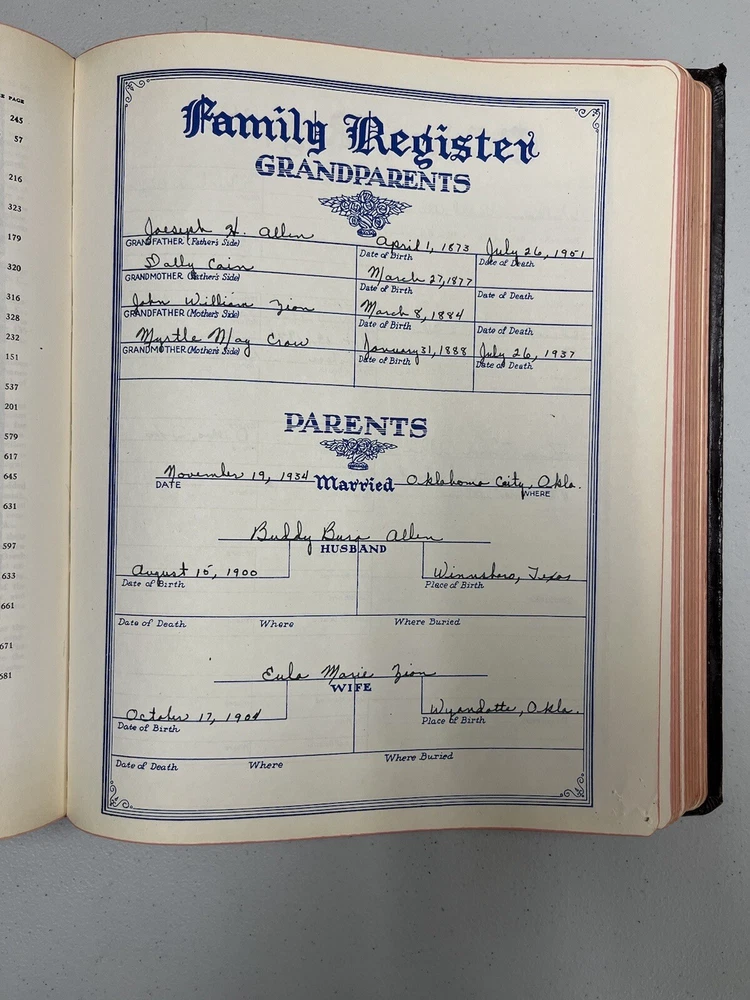 E PAGE
245
57
216
323
179
320
316
328
232
151
537
201
579
617
645
631
597
633
661
671
681
Family Register
GRANDPARENTS
Joeseph H. Allen April 1, 1873 July 26, 1951
GRANDFATHER (Father's Side) Date of Birth Date of Death
Sally Cain March 27, 1877
GRANDMOTHER (Father's Side) Date of Birth Date of Death
John William Zion March 8, 1884
GRANDFATHER (Mother's Side) Date of Birth Date of Death
Myrtle May Crow January 31, 1888 July 26, 1937
GRANDMOTHER (Mother's Side) Date of Birth Date of Death
PARENTS
November 19, 1934 Married Oklahoma City, Okla.
DATE WHERE
Buddy Allen
HUSBAND
August 15, 1900 Winnsboro, Texas
Date of Birth Place of Birth
Date of Death Where Where Buried
Eula Marie Zion
WIFE
October 17, 1904 Wyandotte, Okla.
Date of Birth Place of Birth
Date of Death Where Where Buried